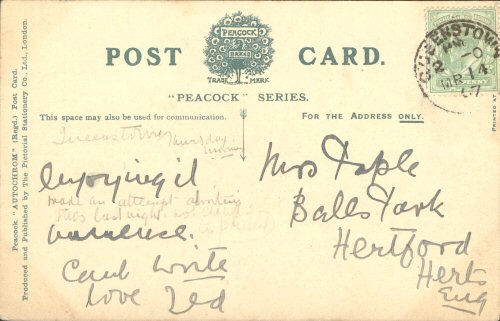 POST CARD.
PEACOCK
BRAND
TRADE MARK
"PEACOCK" SERIES.
This space may also be used for communication.
FOR THE ADDRESS ONLY.
Peacock "AUTOCHROM" (Regd.) Post Card.
Produced and Published by The Pictorial Stationery Co., Ltd., London.
PRINTED AT
QUEENSTOWN
MR 4
07
Queenstown
Thursday
enjoying it
made an attempt
this last night
Cant write
love Ted
Mrs
Balls Park
Hertford
Herts
Eng